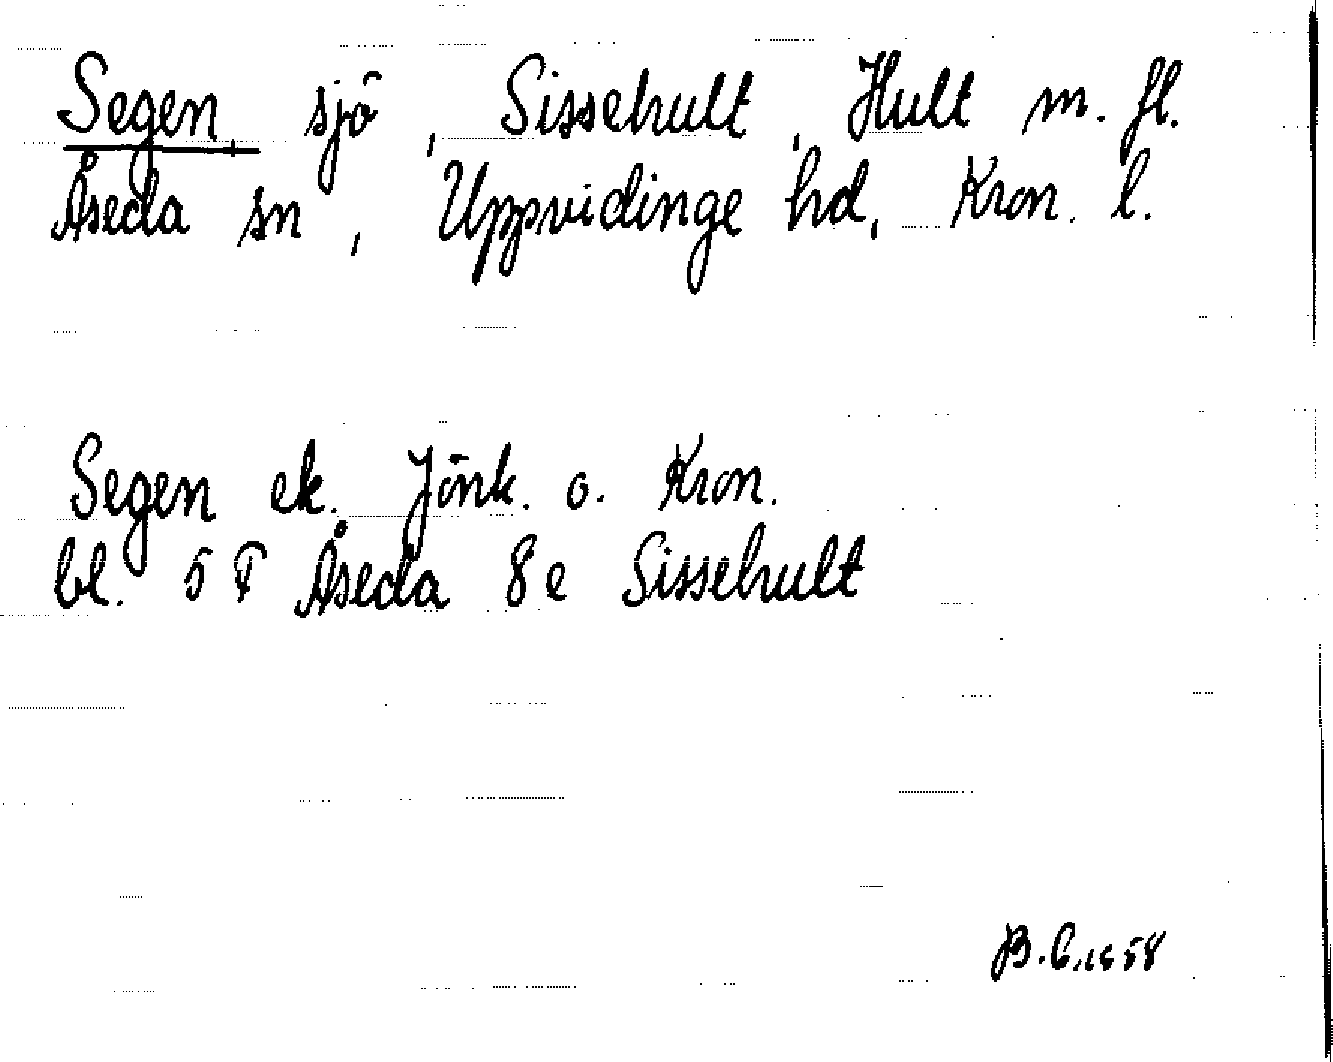 Segen, sjö, Sissehult, Hult m. fl.
Åseda sn, Uppvidinge hd, Kron. l.
Segen ek. Jönk. o. Kron.
bl. 5 F Åseda 8 e Sissehult
B. C. 1958